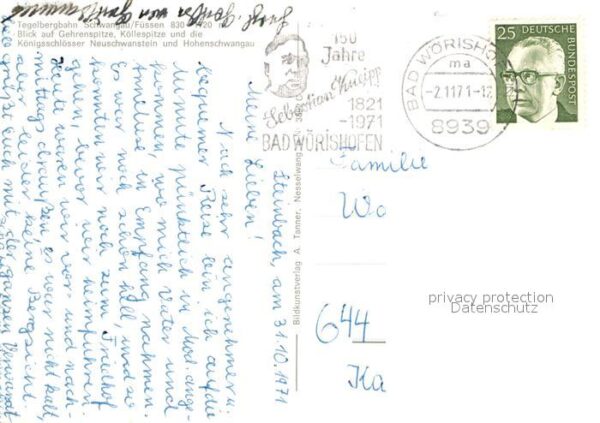 Tegelbergbahn Schwangau/Füssen 830 - 1720 m
Blick auf Gehrenspitze, Köllespitze und die
Königsschlösser Neuschwanstein und Hohenschwangau
150
Jahre
Sebastian Kneipp
1821
-1971
BAD WÖRISHOFEN
BAD WÖRISHOFEN
ma
-2.11.71-12
8939
25 DEUTSCHE
BUNDESPOST
Steinbach, am 31.10.1971
Meine Lieben!
Nach sehr angenehmer u.
bequemer Reise bin ich auf die
Minute pünktlich in
kommen, wo mich Vater und
in Empfang nahmen.
Es war noch schön hell, und so
konnten wir noch zum Friedhof
gehen, bevor wir heimfuhren.
Heute waren wir vor- und nach-
mittags draußen, es war nicht kalt,
aber leider keine Bergsicht.
grüßt Euch mit der ganzen Verwandt
Bildkunstverlag A. Tanner, Nesselwang
Familie
Wo
644
Ka
privacy protection
Datenschutz